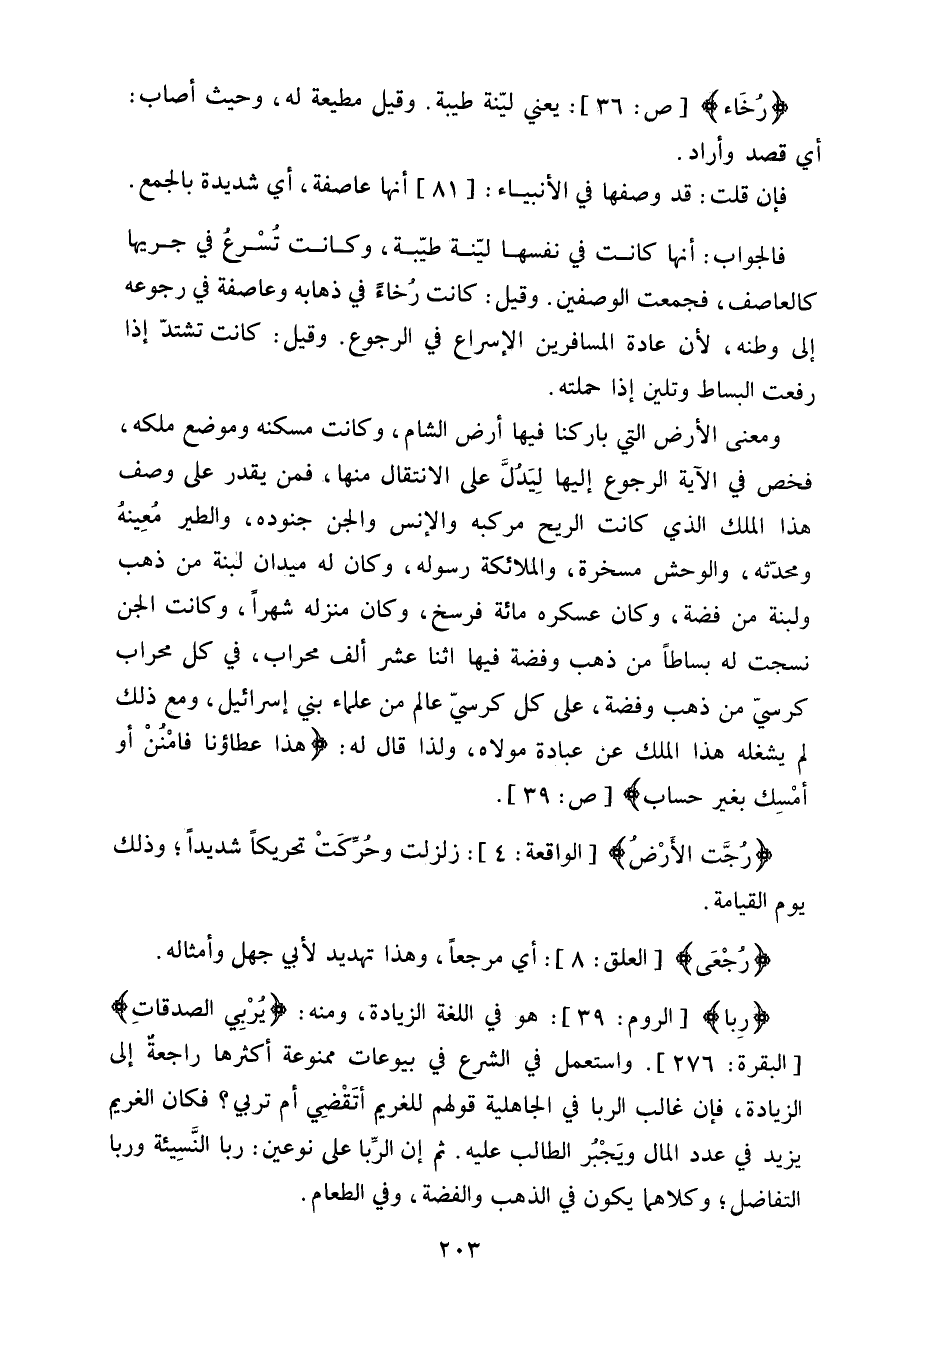 ﴿رُخَاء﴾ [ ص: ٣٦ ]: يعني ليّنة طيبة. وقيل مطيعة له، وحيث أصاب:
أي قصد وأراد.
فإن قلت: قد وصفها في الأنبياء: [ ٨١ ] أنها عاصفة، أي شديدة بالجمع.
فالجواب: أنها كانت في نفسها ليّنة طيّبة، وكانت تُسْرعُ في جريها
كالعاصف، فجمعت الوصفين. وقيل: كانت رُخاءً في ذهابه وعاصفة في رجوعه
إلى وطنه، لأن عادة المسافرين الإسراع في الرجوع. وقيل: كانت تشتدّ إذا
رفعت البساط وتلين إذا حملته.
ومعنى الأرض التي باركنا فيها أرض الشام، وكانت مسكنه وموضع ملكه،
فخص في الآية الرجوع إليها لِيَدُلَّ على الانتقال منها، فمن يقدر على وصف
هذا الملك الذي كانت الريح مركبه والإنس والجن جنوده، والطير مُعِينهُ
ومحدّثه، والوحش مسخرة، والملائكة رسوله، وكان له ميدان لبنة من ذهب
ولبنة من فضة، وكان عسكره مائة فرسخ، وكان منزله شهراً، وكانت الجن
نسجت له بساطاً من ذهب وفضة فيها اثنا عشر ألف محراب، في كل محراب
كرسيّ من ذهب وفضة، على كل كرسيّ عالم من علماء بني إسرائيل، ومع ذلك
لم يشغله هذا الملك عن عبادة مولاه، ولذا قال له: ﴿هذا عطاؤنا فامْنُنْ أو
أمْسِك بغير حساب﴾ [ ص: ٣٩ ].
﴿رُجَّت الأَرْضُ﴾ [ الواقعة: ٤ ]: زلزلت وحُرِّكَتْ تحريكاً شديداً؛ وذلك
يوم القيامة.
﴿رُجْعَى﴾ [ العلق: ٨ ]: أي مرجعاً، وهذا تهديد لأبي جهل وأمثاله.
﴿رِبا﴾ [ الروم: ٣٩ ]: هو في اللغة الزيادة، ومنه: ﴿يُرْبِي الصدقاتِ﴾
[ البقرة: ٢٧٦ ]. واستعمل في الشرع في بيوعات ممنوعة أكثرها راجعةٌ إلى
الزيادة، فإن غالب الربا في الجاهلية قولهم للغريم أتَقْضِي أم تربي؟ فكان الغريم
يزيد في عدد المال ويَجْبُر الطالب عليه. ثم إن الرِّبا على نوعين: ربا النَّسِيئة وربا
التفاضل؛ وكلاهما يكون في الذهب والفضة، وفي الطعام.
٢٠٣